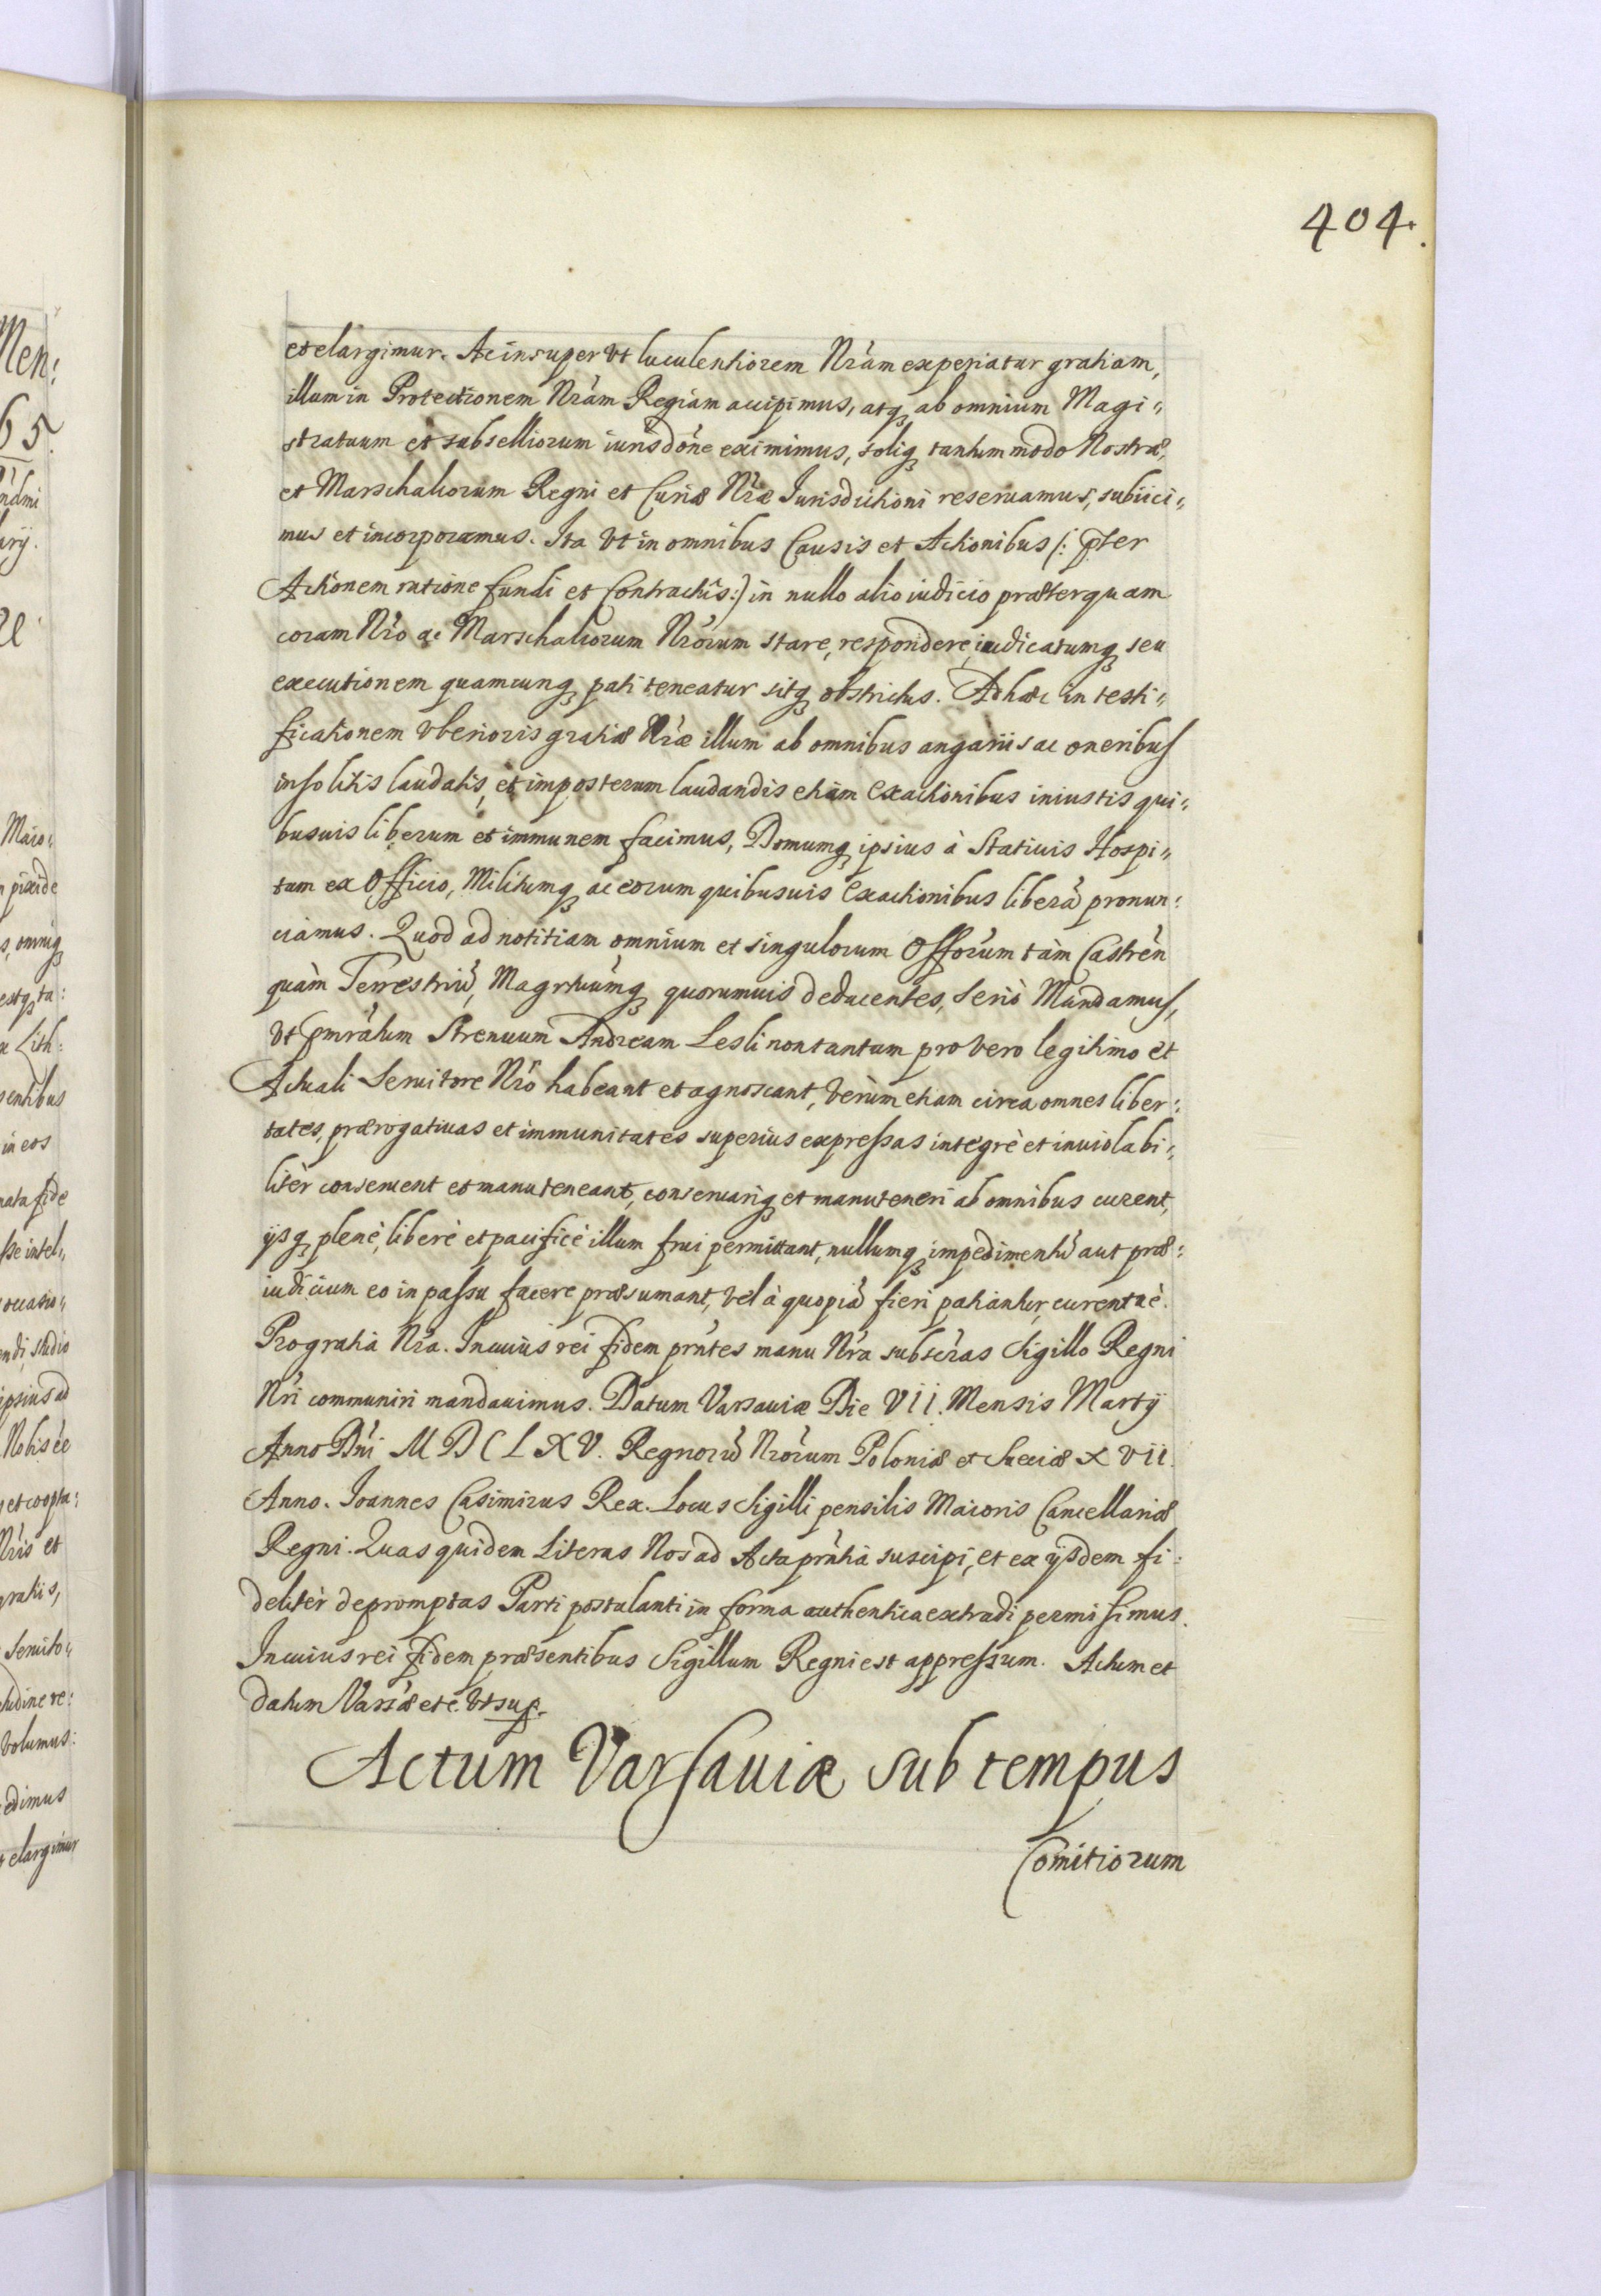 404.
et elargimur. Ac insuper Vt luculentiorem Nr̃am experiatur gratiam,
illum in Protectionem Nr̃am Regiam accipimus, atq₃ ab omnium Magi„
stratuum et subselliorum iurisdõne eximimus, soliq₃ tantummodo Nostræ,
et Marschaliorum Regni et Curiæ Nr̃æ Iurisdictioni reseruamus, subiici„
mus et incorporamus. Ita Vt in omnibus Causis et Actionibus /: p̃ter
Actionem ratione fundi et Contractus:/ in nullo alio iudicio præterquam
coram Nr̃o ac Marschaliorum Nr̃orum stare, respondere, iudicatumq₃ seu
executionem quamcunq₃ pati teneatur sitq₃ obstrictus. Ad hæc in testi„
ficationem Vberioris gratiæ Nr̃æ illum ab omnibus angariis ac oneribus
insolitis laudatis, et imposterum laudandis etiam Exactionibus iniustis qui„
busuis liberum et immunem facimus, Domumq₃ ipsius à Statiuis Hospi„
tum ex Officio, Militumq₃ ac eorum quibusuis Exactionibus liberã pronun:
ciamus. Quod ad notitiam omnium et singulorum Offõrum tàm Castreñ
quàm Terrestriũ, Magr̃tuumq₃ quorumuis deducentes, seriò Mandamus,
Vt p̃mr̃atum Strenuum Andream Lesli non tantum pro Vero legitimo et
Actuali Seruitore Nr̃o habeant et agnoscant, Verùm etiam circa omnes liber:
tates, prærogatiuas et immunitates superius expressas integrè et inuiolabi„
litèr conseruent et manuteneant, conseruariq₃ et manuteneri ab omnibus curent,
ijsq₃ plenè, liberè et pacificè illum frui permittant, nullumq₃ impedimentũ aut præ:
iudicium eo in passu facere præsumant, Vel à quopiã fieri patiantur, curent nè.
Pro gratia Nr̃a. In cuius rei fidem pr̃ntes manu Nr̃a subscr̃as Sigillo Regni
Nr̃i communiri mandauimus. Datum Varsauiæ Die VII. Mensis Martij
Anno Dñi M D C L X V. Regnorũ Nr̃orum Poloniæ et Sueciæ X VII.
Anno. Joannes Casimirus Rex. Locus Sigilli pensilis Maioris Cancellariæ
Regni. Quas quidem Literas Nos ad Acta pr̃ntia suscipi, et ex ijsdem fi:
delitèr depromptas Parti postulanti in forma authentica extradi permisimus.
In cuius rei fidem præsentibus Sigillum Regni est appressum. Actum et
datum Vars̃æ etc. Vt sup.
Actum Varsauiæ sub tempus
Comitiorum